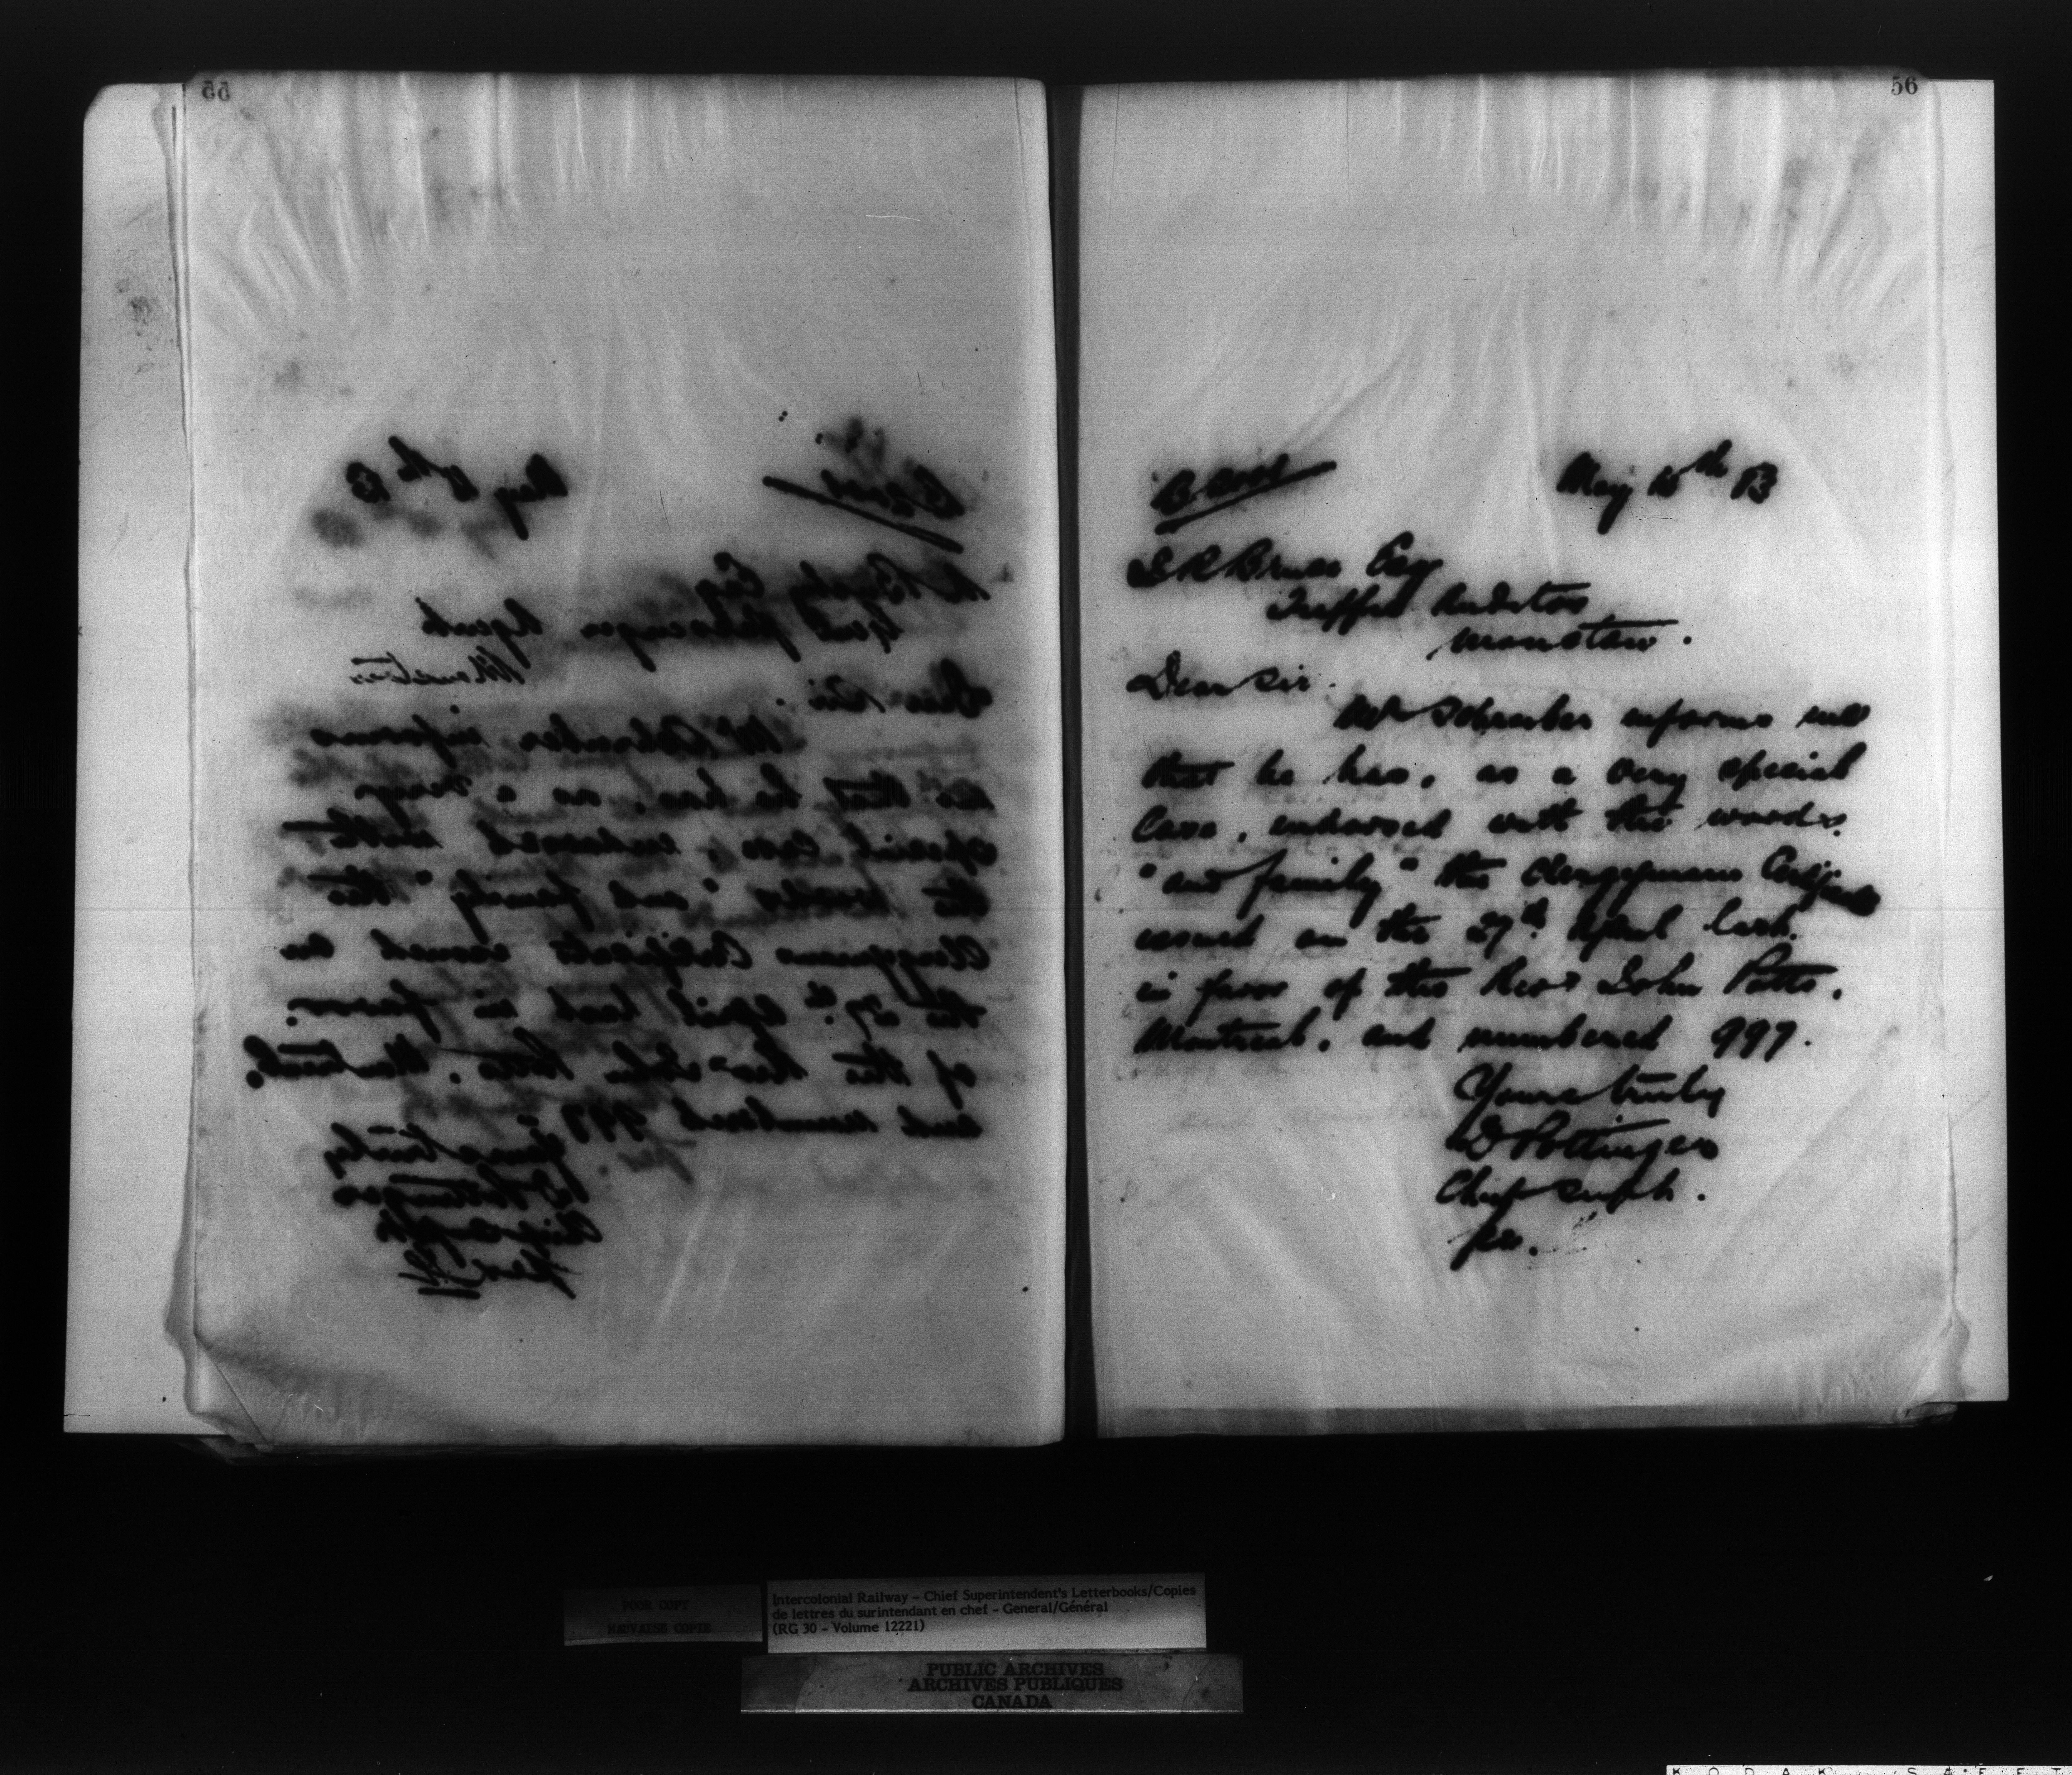 55
May 10th 83
Esq
Genl Passenger Agent
Moncton
Dear Sir.
Mr Schreiber informs
me that he has, as a very
special case, endorsed with
the words "and family" the
Clergymans Certificate issued on
the 27th April last in favor
of the Revd John Potts, Montreal,
and numbered 997.
Yours truly
D Pottinger
Chief Supt
per
56
May 10th 83
Bruce Esq
Traffic Auditor
Moncton.
Dear Sir.
Mr Schreiber informs me
that he has, as a very special
Case, endorsed with the words
"and family" the Clergymans Certificate
issued on the 27th April last.
in favor of the Revd John Potts,
Montreal, and numbered 997.
Yours truly
D Pottinger
Chief Supt.
per.
POOR COPY
MAUVAISE COPIE
Intercolonial Railway - Chief Superintendent's Letterbooks/Copies
de lettres du surintendant en chef - General/Général
(RG 30 - Volume 12221)
PUBLIC ARCHIVES
ARCHIVES PUBLIQUES
CANADA
KODAK SAFET